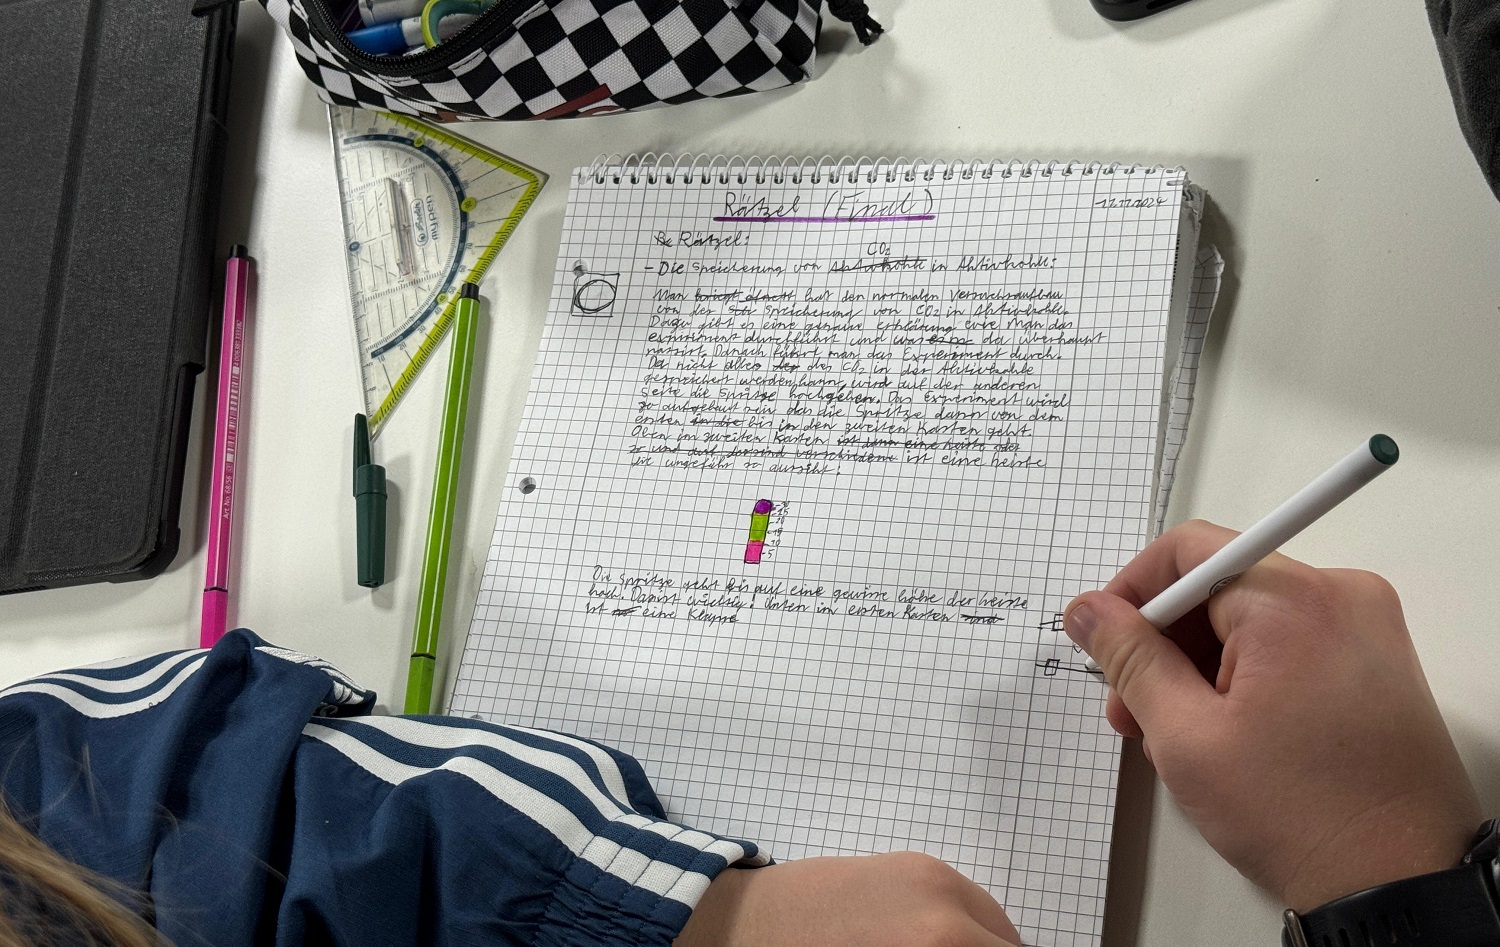 Rätzel (Final)
Rätzel:
CO₂
- Die Speicherung von Aktivkohle in Aktivkohle:
Man hat den normalen Versuchsaufbau
von der Speicherung von CO₂ in Aktivkohle.
Dazu gibt es eine genaue erklärung wie Man das
experiment durchführt und was da überhaupt
passirt. Danach führt man das Experiment durch.
Da nicht alles des CO₂ in der Aktivkohle
gespreichert werden kann, wird auf der anderen
Seite die Spritze hochgehen. Das Experiment wird
so aufgebaut sein das die Spritze dann von dem
ersten in die bis in den zweiten Kasten geht.
Oben im zweiten Kasten ist dann eine leiste oder
so und dort sind verschiedene ist eine leiste
die ungefähr so aussiht:
-15
-10
-5
Die spritze geht bis auf eine gewisse höhe der leiste
hoch. Danist wichtig: Unten im ersten Kasten sind
ist eine Klappe
my.pen